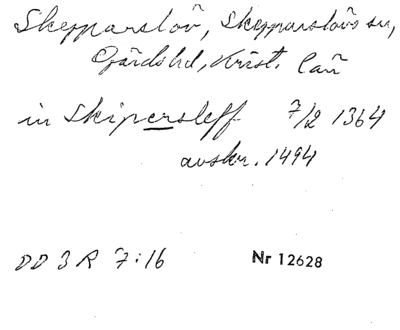 Skepparslöv, Skepparslövs sn,
Gärds hd, Krist. län
in Skipersleff 7/2 1364
avskr. 1494
DD 3 R 7:16 Nr 12628